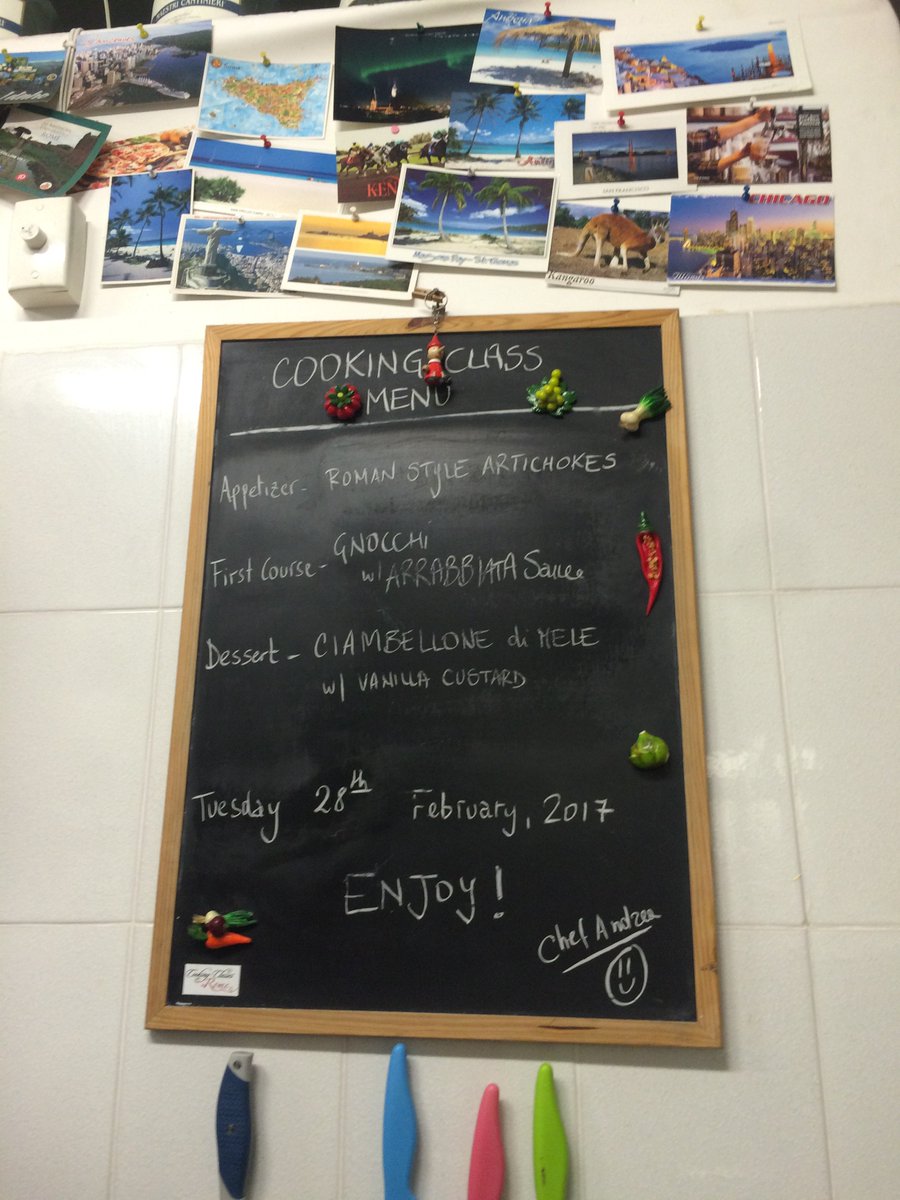 MAESTRI CANTINIERI
ROME
KEN
SAN FRANCISCO
Kangaroo
CHICAGO
COOKING CLASS
MENU
Appetizer - ROMAN STYLE ARTICHOKES
First Course - GNOCCHI
w/ ARRABBIATA Sauce
Dessert - CIAMBELLONE di MELE
w/ VANILLA CUSTARD
Tuesday 28th February, 2017
ENJOY!
Chef Andrea
Cooking Classes
Rome